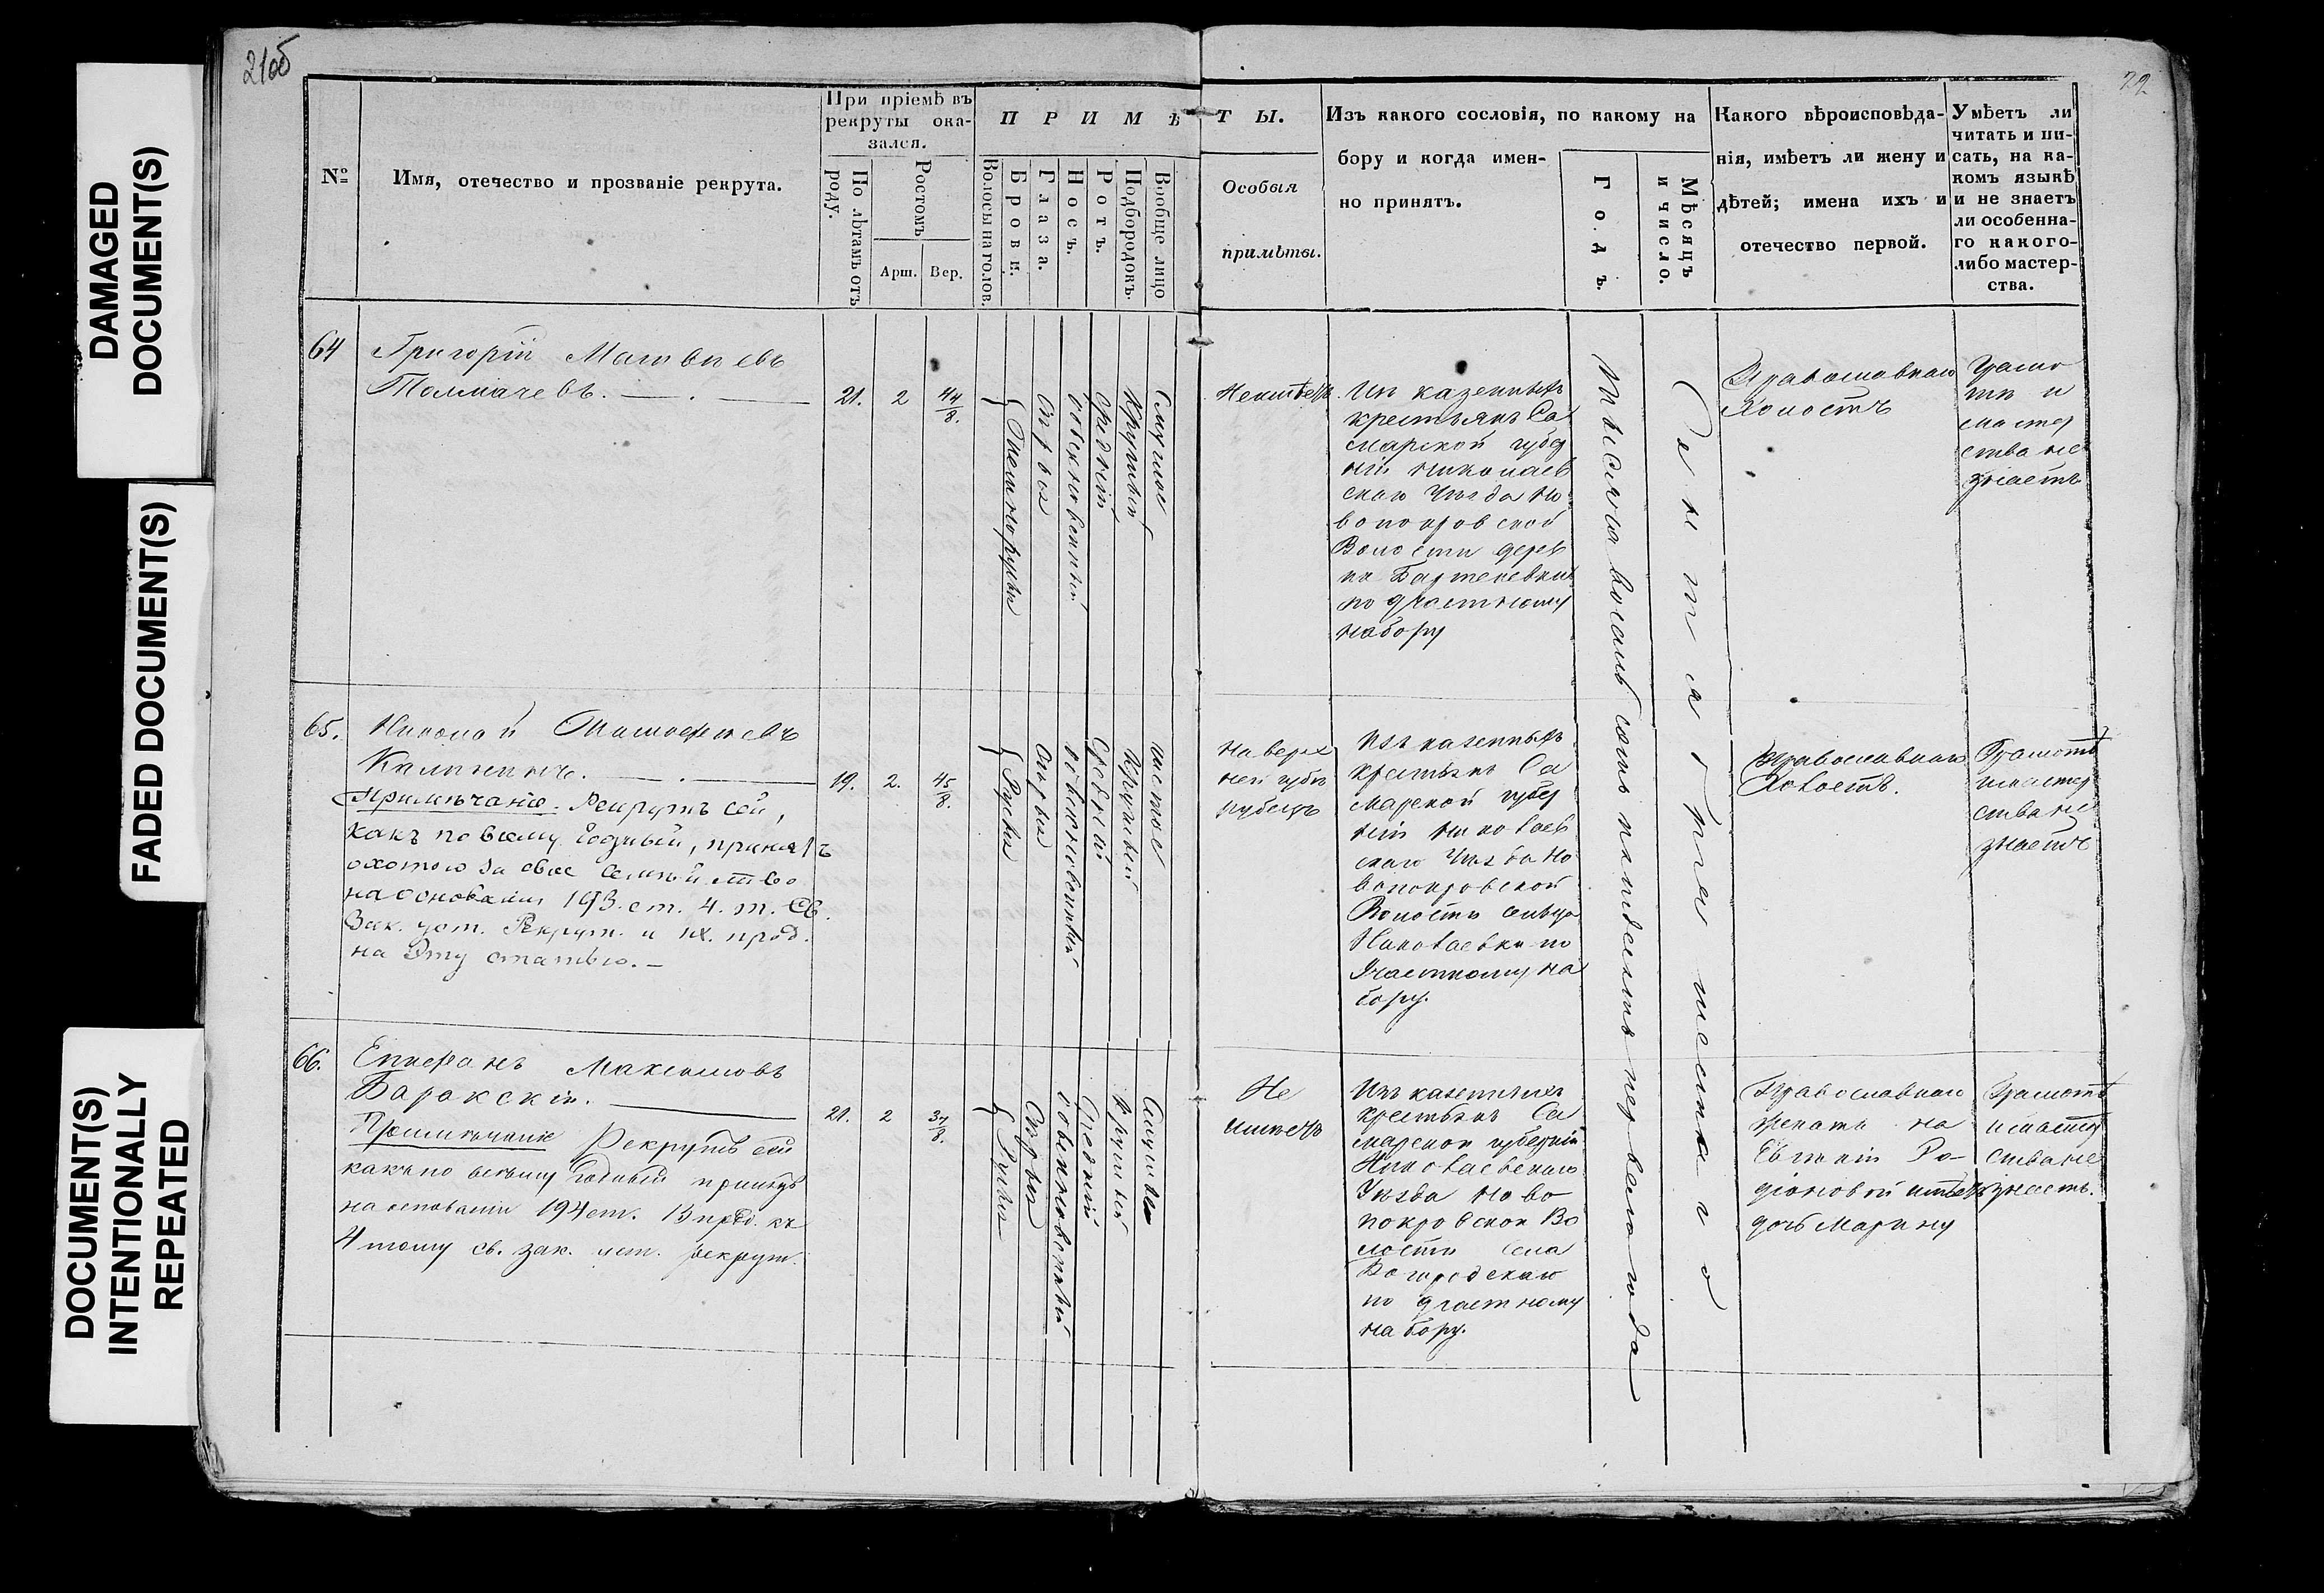 DAMAGED
DOCUMENT(S)
FADED DOCUMENT(S)
DOCUMENT(S)
INTENTIONALLY
REPEATED
21об
22
№
Имя, отечество и прозваніе рекрута.
При пріемѣ въ
рекруты ока-
зался.
По лѣтамъ отъ
роду.
Ростомъ
Арш.
Вер.
П Р И М Ѣ
Волосы на голов.
Брови.
Глаза.
Носъ.
Ротъ.
Подбородокъ.
Вообще лицо
Т Ы.
Особыя
примѣты.
Изъ какого сословія, по какому на
бору и когда имен-
но принятъ.
Годъ.
Мѣсяцъ
и число.
Какого вѣроисповѣда-
нія, имѣетъ ли жену и
дѣтей; имена ихъ и
отечество первой.
Умѣетъ ли
читать и пи-
сать, на ка-
комъ языкѣ
и не знаетъ
ли особенна-
го какого-
либо мастер-
ства.
64
Григорій Матвѣевъ
Толмачевъ.
21.
2
4 4/8.
Темнорусые
Сѣрые
обыкновенный
Средній
Круглый
Смуглое
Неимѣетъ.
Изъ казенныхъ
крестьянъ Са
марской губер
ніи Николаев
скаго Уѣзда Но
вопокровской
Волости дерев
ни Бартеневки
по участному
набору
Тысяча восемь сотъ пятьдесятъ перваго года
Сентября
Православнаго
Холостъ
Грамо
ты и
мастер
ства не
знаетъ
65.
Николай
Калининъ.
Примѣчаніе. Рекрутъ сей,
какъ по всему годный, принятъ
охотою за свое семейство
на основаніи 193. ст. 4. т. Св.
Зак. уст. Рекрут. и IX. прод.
на эту статью.
19.
2.
4 5/8.
Русые
Сѣрые
обыкновенный
Средній
Круглый
чистое
На верх
ней губѣ
рубецъ
Изъ казенныхъ
крестьянъ Са
марской губер
ніи Николаев
скаго Уѣзда Но
вопокровской
Волости сельца
Николаевки по
Участному на
бору.
Православнаго
Холостъ.
Грамоты
и мастер
ства не
знаетъ
66.
Епифанъ Максимовъ
Баракскій.
Примѣчаніе Рекрутъ сей
какъ по всѣму годный принятъ
на основаніи 194 ст. 13 прод. къ
4 тому св. зак. уст. рекрут.
21.
2
3 7/8.
Русые
Сѣрые
обыкновенный
Средній
Круглый
Не
имѣетъ
Изъ казенныхъ
крестьянъ Са
марской губерніи
Николаевскаго
Уѣзда Ново
покровской Во
лости Села
Богородскаго
по участному
набору.
Православнаго
женатъ на
Евгеніи Ро-
діоновой имѣетъ
дочь Марину
Грамоты
и мастер
ства не
знаетъ.